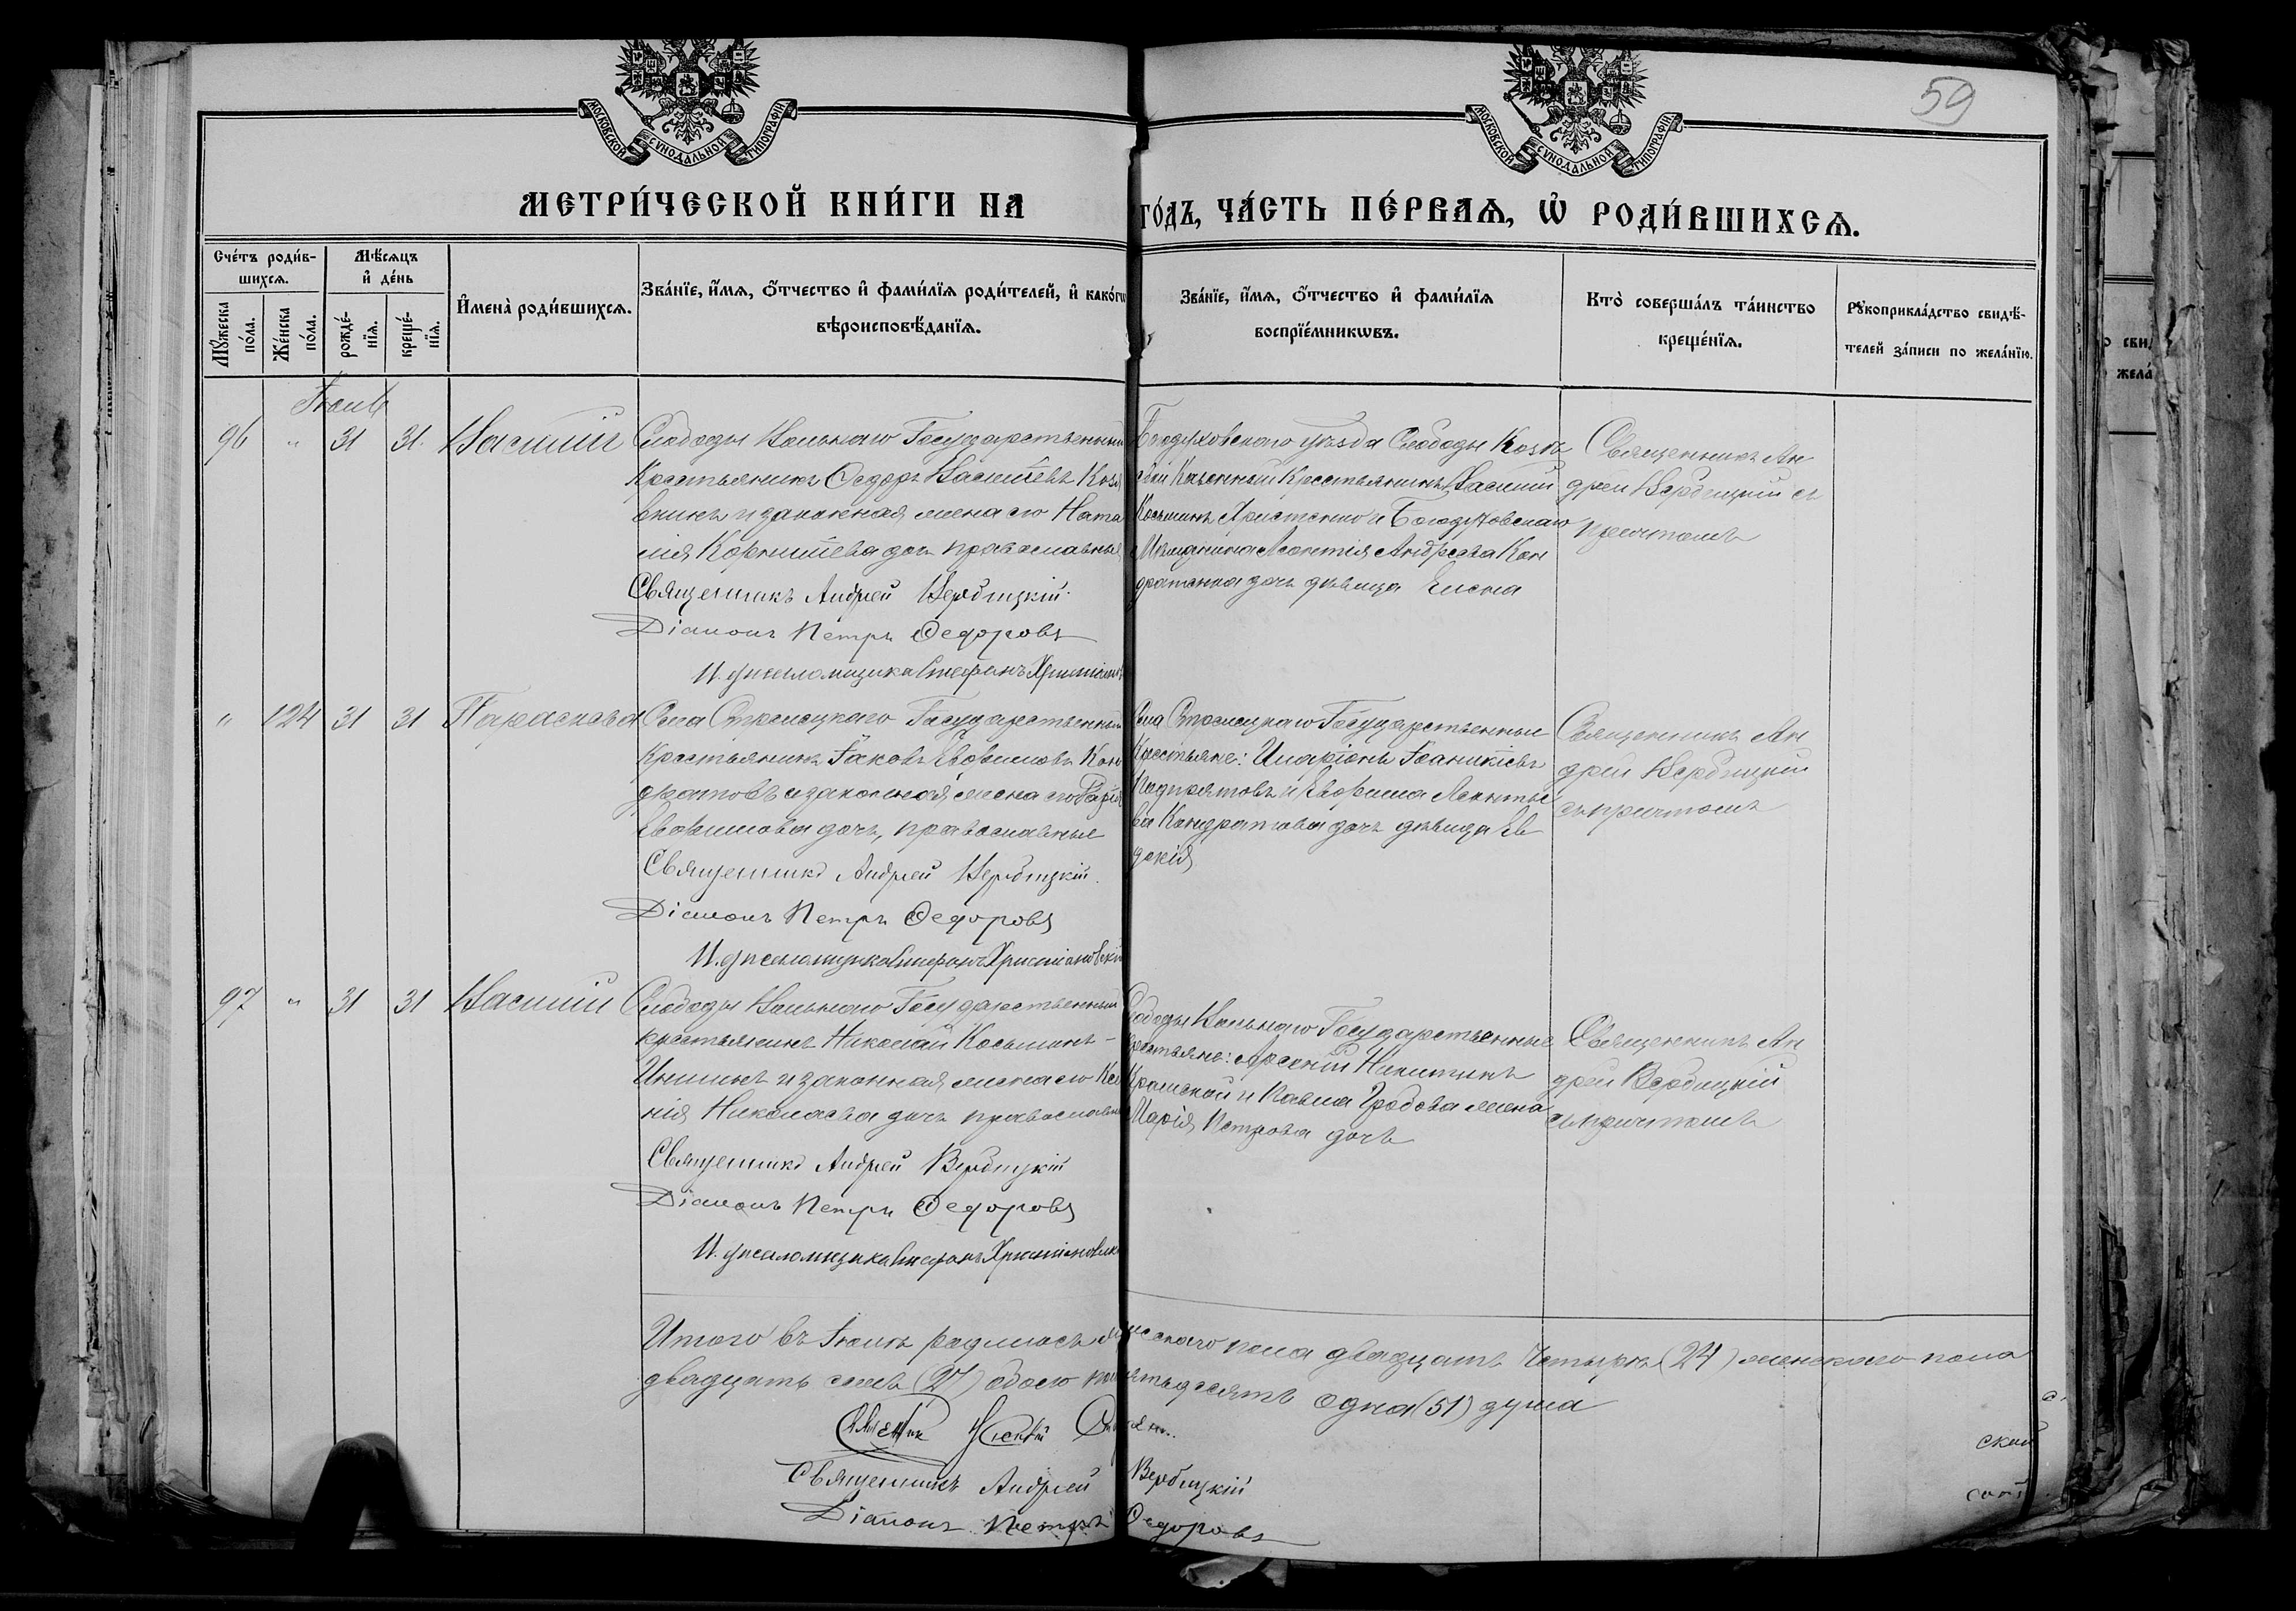 59
МОСКОВСКОЙ СѴНОДАЛЬНОЙ ТИПОГРАФІИ
МОСКОВСКОЙ СѴНОДАЛЬНОЙ ТИПОГРАФІИ
МЕТРИ́ЧЕСКОЙ КНИ́ГИ НА ГО́ДЪ, ЧА́СТЬ ПЕ́РВАѦ, Ѡ РОДИ́ВШИХСѦ.
Сче́тъ роди́в-
шихсѧ.
Мѣ́сѧцъ
и де́нь
Мꙋ́жеска
по́ла.
Же́нска
по́ла.
рожде́-
нїѧ.
креще́-
нїѧ.
Имена̀ роди́вшихсѧ.
Зва́нїе, и́мѧ, ѻ́тчество и фами́лїѧ роди́телей, и како́гѡ
вѣроисповѣ́данїѧ.
Зва́нїе, и́мѧ, ѻ́тчество и фами́лїѧ
воспрїе́мникѡвъ.
Кто̀ соверша́лъ та́инство
креще́нїѧ.
Рꙋкоприкла́дство свидѣ́-
телей за́писи по жела́нїю.
Іюль
96 " 31 31. Василій
Слободы Вольнаго Государственный
Крестьянинъ Ѳедоръ Васильевъ
и законная жена его Ната
лія Корнильева дочь православные
Священникъ Андрей Вербицкій.
Діаконъ Петръ Ѳедоровъ
И. д. псаломщика Стефанъ
Богодуховскаго уѣзда Слободы
Крестьянинъ Василій
Косьминъ и Богодуховскаго
Мѣщанина Леонтія Андреева Кон
дратенка дочь дѣвица Елена
Священникъ Ан
дрей Вербицкій съ
причтомъ
" 124 31 31 Параскева
Села Стрелецкаго Государственный
Крестьянинъ Іаковъ Евфимовъ Кон
дратовъ и законная жена его
Евфимова дочь, православные
Священникъ Андрей Вербицкій.
Діаконъ Петръ Ѳедоровъ
И. д. псаломщика Стефанъ Христіановскій
Села Стрелецкаго Государственные
Крестьяне: Иларіонъ Іоаникіевъ
и Евфима Леонтье
ва Кондратова дочь дѣвица Ев
докія
Священникъ Ан
дрей Вербицкій
съ причтомъ
97 " 31 31 Василій
Слободы Вольнаго Государственный
крестьянинъ Николай Косьминъ
и законная жена его Ксе
нія Николаева дочь православные
Священникъ Андрей Вербицкій
Діаконъ Петръ Ѳедоровъ
И. д. псаломщика Стефанъ
Слободы Вольнаго Государственные
крестьяне: Арсеній Никитинъ
и Павла Гробова жена
Марія Петрова дочь
Священникъ Ан
дрей Вербицкій
съ причтомъ
Итого въ Іюлѣ родилось мужескаго пола двадцать четыре (24) женскаго пола
двадцать семь (27) обоего пола пятьдесятъ одна (51) душа
Священникъ Андрей Вербицкій
Діаконъ Петръ Ѳедоровъ